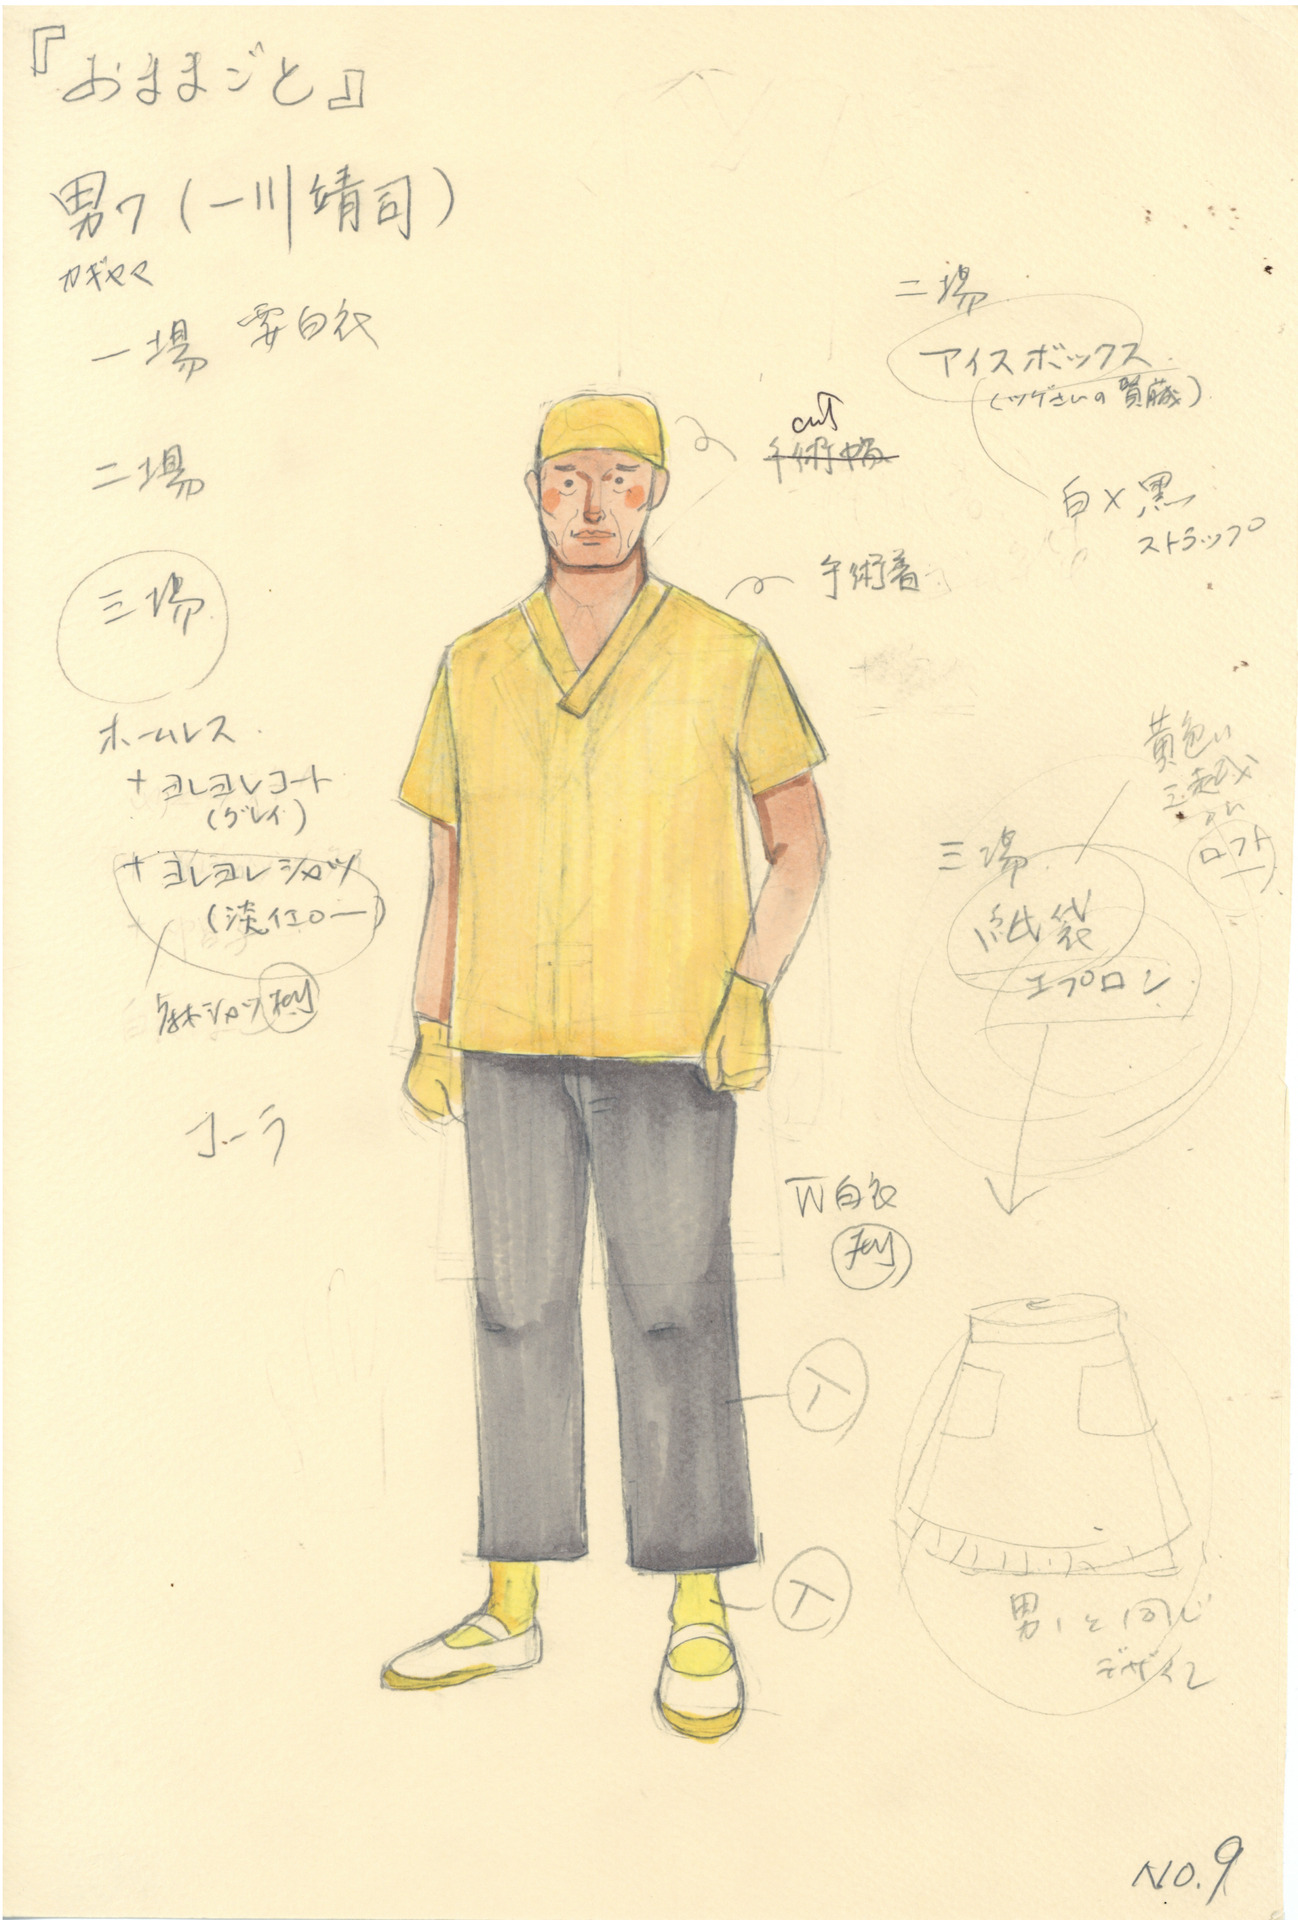 『おままごと』
男7(一川靖司)
カギヤマ
一場 要白衣
二場
三場
ホームレス
+ヨレヨレコート
(グレイ)
+ヨレヨレシャツ
(淡イエロー)
麻シャツ
コーラ
二場
アイスボックス
(ツゲさいの貿蔵)
白×黒
ストラップ
cut
手術帽
手術着
黄色い
ロフト
三場
紙袋
エプロン
W白衣
男1と同じ
デザイン
NO.9